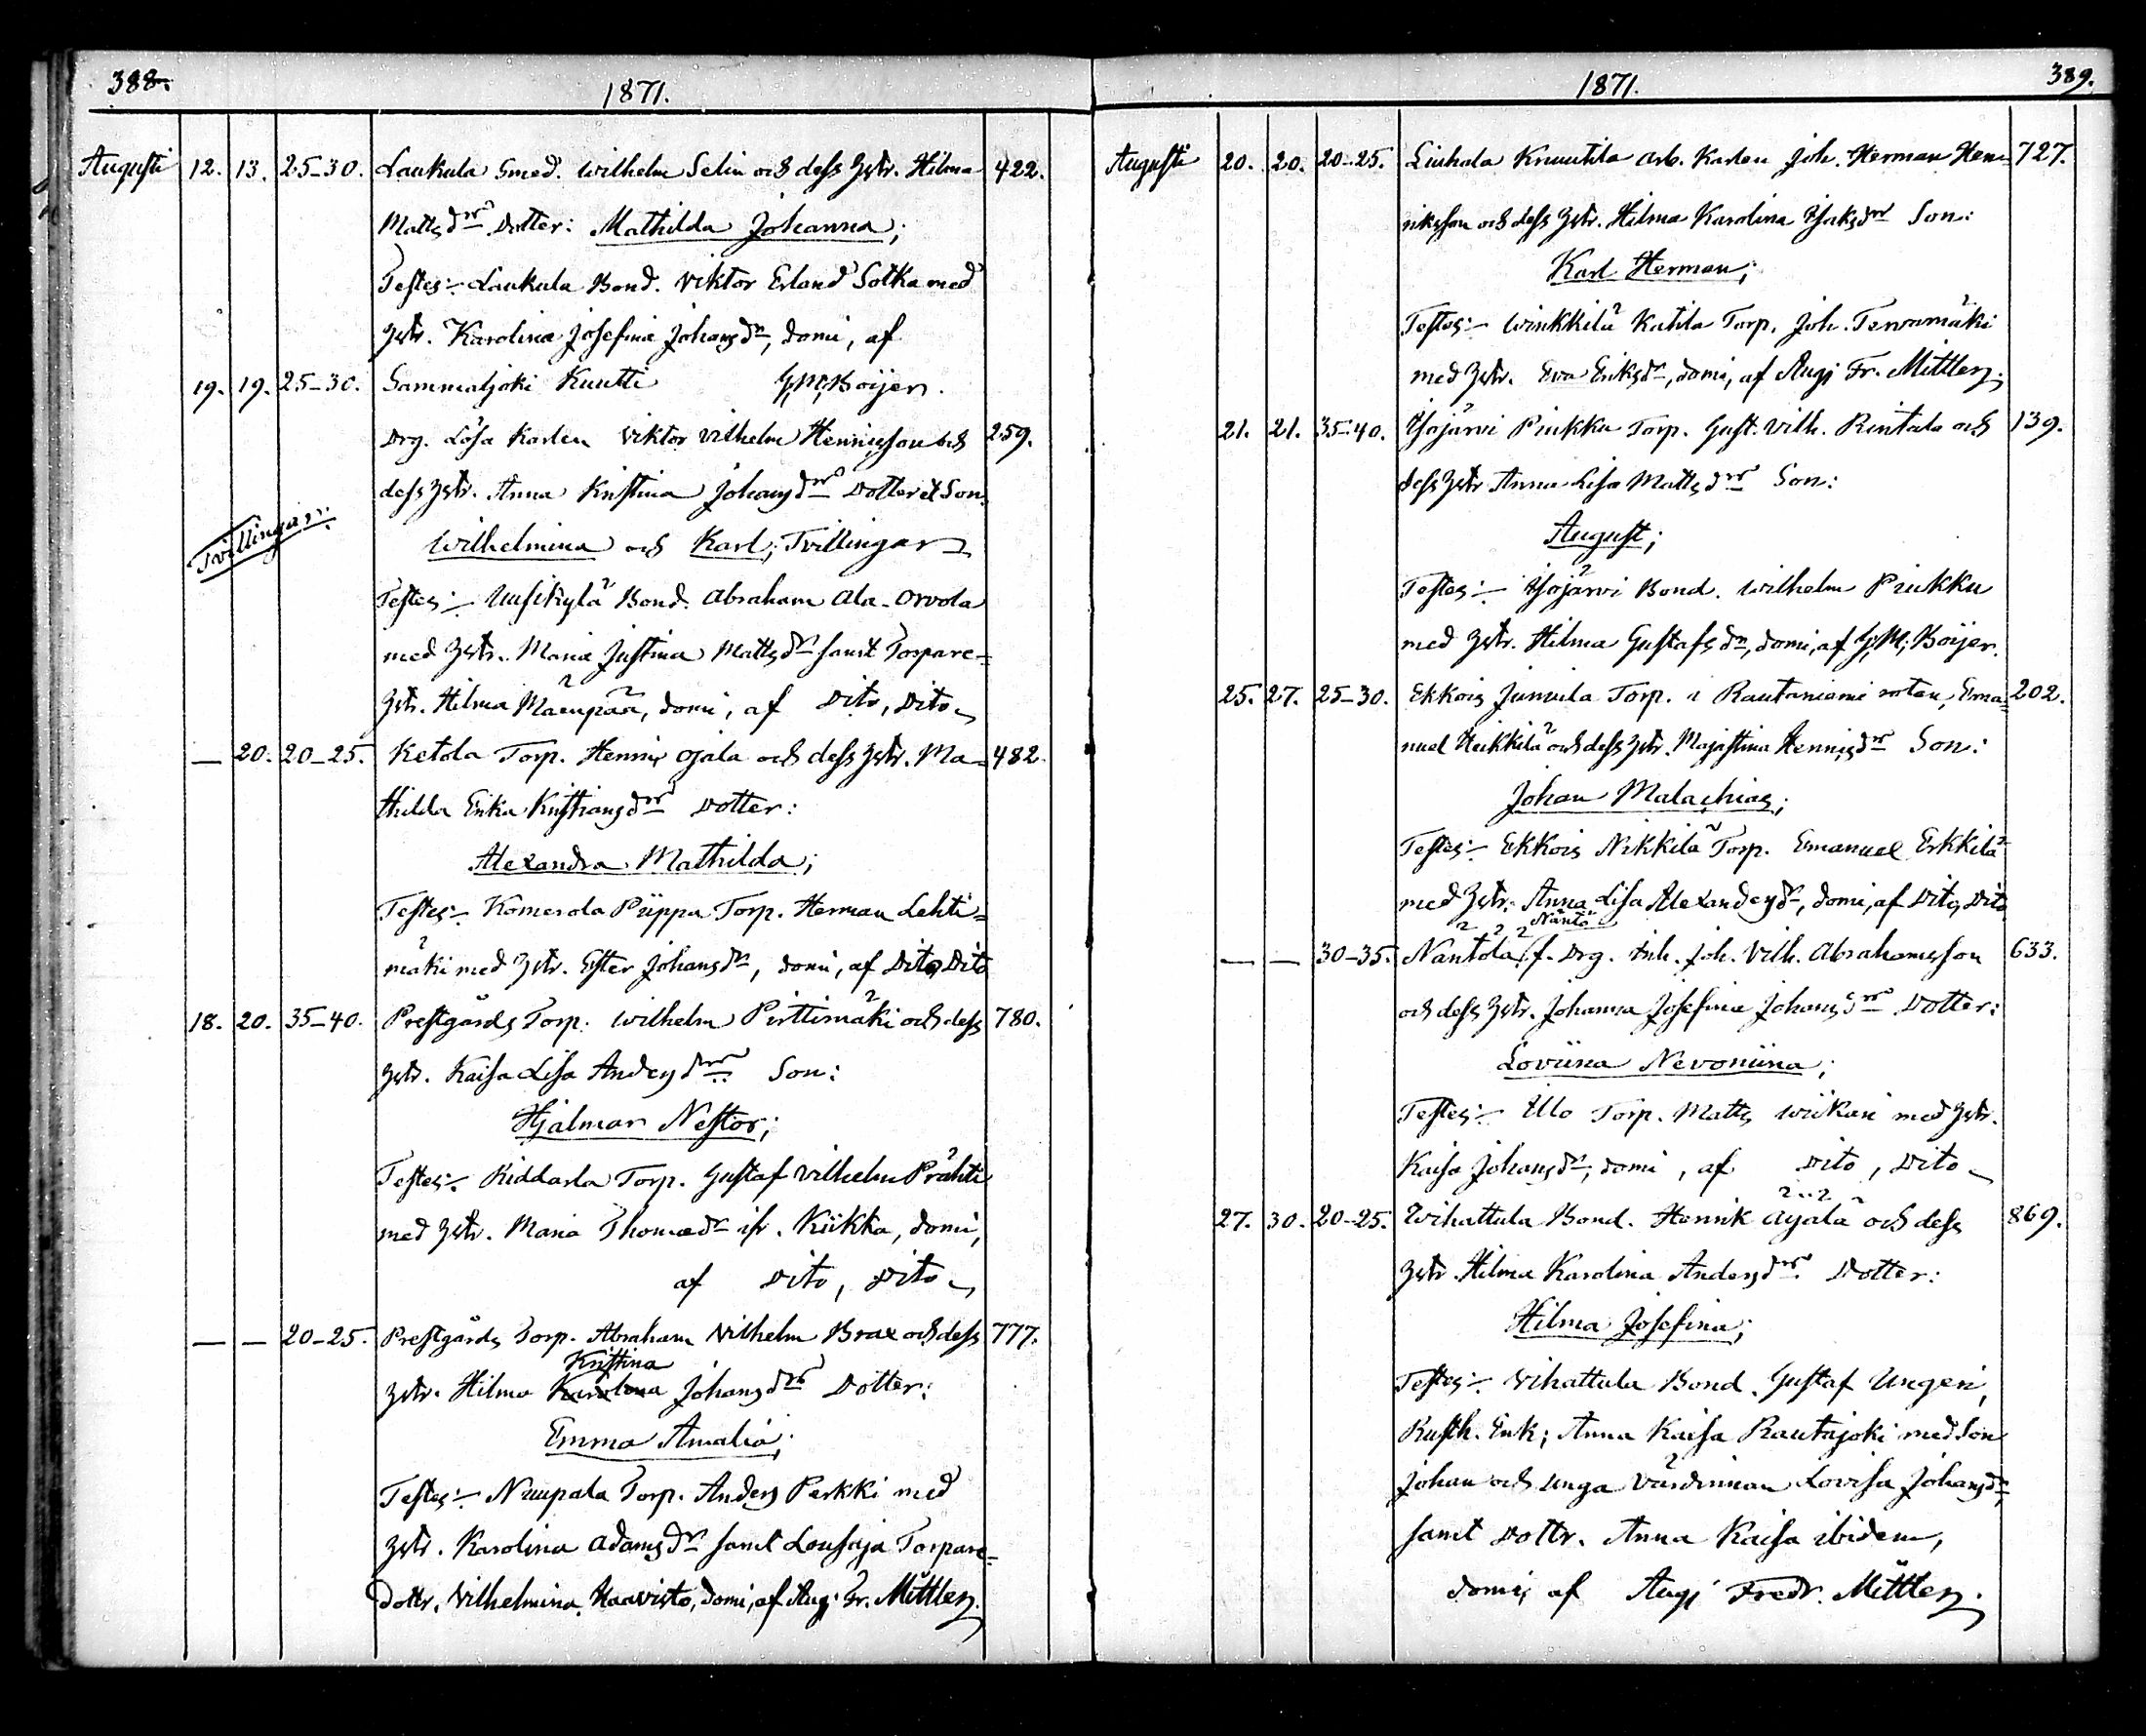 388.
1871.
Augusti 12. 13. 25-30. Laukula Smed. Wilhelm Selin och dess hstr. Hilma 422.
Mattsdr Dotter: Mathilda Johanna;
Testes:- Laukula Bond. Viktor Erland Sotka med
hstr. Karolina Josefina Johansdr, domi, af
19. 19. 25-30. Sammaljoki Knutti G, M, Boijer.
Drg. Lösa Karlen Viktor Vilhelm Henriksson och 259.
dess hstr. Anna Kristina Johansdr Dotter et Son:
Tvillingar: Wilhelmina och Karl; Tvillingar
Testes:- Uusikylä Bond. Abraham Ala-Orvola
med hstr. Maria Justina Mattsdr samt Torpare-
hstr. Hilma Mäenpää, domi, af Dito, Dito
— 20. 20-25. Ketola Torp. Henrik Ojala och dess hstr. Ma- 482.
thilda Erika Kristiansdr Dotter:
Alexandra Mathilda;
Testes:- Komerola Piippa Torp. Herman Lehti-
mäki med hstr. Ester Johansdr, domi, af Dito, Dito
18. 20. 35-40. Prestgårds Torp. Wilhelm Pirttimäki och dess 780.
hstr. Kaisa Lisa Andersdr Son:
Hjalmar Nestor;
Testes:- Riddarla Torp. Gustaf Vilhelm Prähti
med hstr. Maria Thomædr ifr. Kiikka, domi,
af Dito, Dito
— — 20-25. Prestgårds Torp. Abraham Vilhelm Brax och dess 777.
Kristina
hstr. Hilma Karolina Johansdr Dotter:
Emma Amalia;
Testes:- Nuupala Torp. Anders Perkki med
hstr. Karolina Adamsdr samt Lousaja Torpare-
dottr. Vilhelmina Haavisto, domi, af Aug: Fr. Mittler.
1871.
389.
Augusti 20. 20. 20-25. Liuhala Knuutila Arb. Karlen Joh. Herman Hen- 727.
riksson och dess hstr. Hilma Karolina Isaksdr Son:
Karl Herman;
Testes:- Winkkilä Katila Torp. Joh. Tervamäki
med hstr. Eva Eriksdr, domi, af Aug: Fr. Mittler.
21. 21. 35-40. Isojärvi Piukku Torp. Gust. Vilh. Rintala och 139.
dess hstr. Anna Lisa Mattsdr Son:
August;
Testes:- Isojärvi Bond. Wilhelm Piukku
med hstr. Hilma Gustafsdr, domi, af G, M, Boijer.
25. 27. 25-30. Ekkois Junnila Torp. i Rautaniemi rotan, Ema- 202.
nuel Heikkilä och dess hstr. Majastina Henriksdr Son:
Johan Malachias;
Testes:- Ekkois Nikkilä Torp. Emanuel Erkkilä
med hstr. Anna Lisa Alexandersdr, domi, af Dito, Dito
Näntö
— — 30-35. Näntölä, f. Drg. Inh. Joh. Vilh. Abrahamsson 633.
och dess hstr. Johanna Josefina Johansdr Dotter:
Loviina Nevoniina;
Testes:- Illo Torp. Matts Wiikari med hstr.
Kaisa Johansdr, domi, af Dito, Dito
27. 30. 20-25. Wihattula Bond. Henrik Äijälä och dess 869.
hstr. Hilma Karolina Andersdr Dotter:
Hilma Josefina;
Testes:- Vihattula Bond. Gustaf Ungeri,
Rusth. Enk; Anna Kaisa Rautajoki med Son
Johan och unga Värdinnan Lovisa Johansdr,
samt Dottr. Anna Kaisa ibidem,
domi, af Aug: Fredr. Mittler.